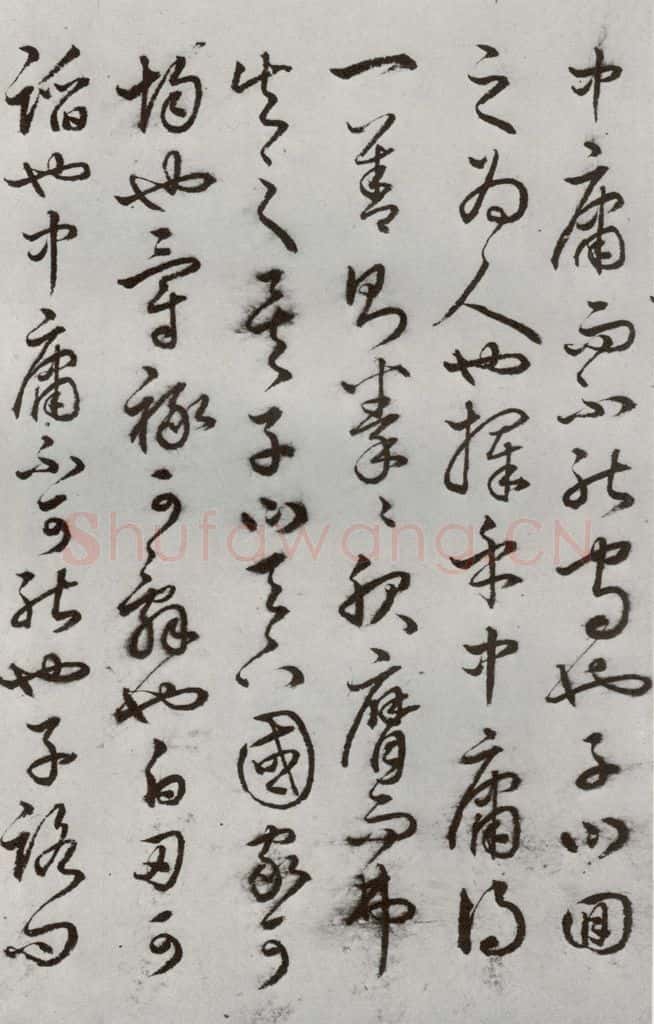 中庸而不能守也子曰回
之為人也擇乎中庸得
一善則拳〻服膺而弗
失之矣子曰天下國家可
均也爵祿可辭也白刃可
蹈也中庸不可能也子路問
Shufawang.CN